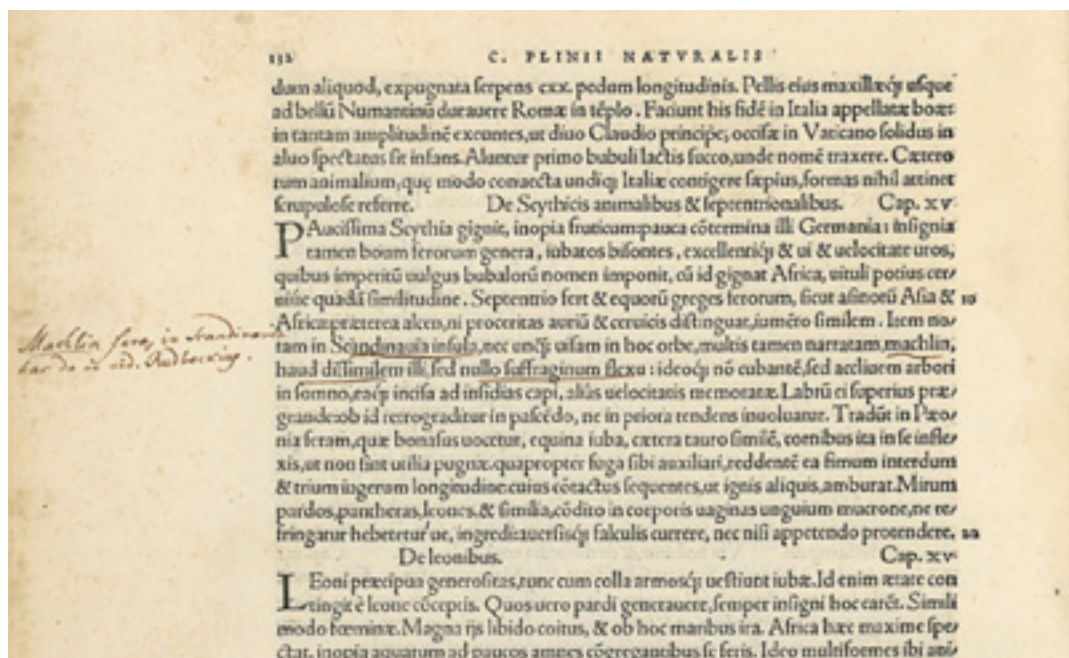 132 C. PLINII NATVRALIS
dum aliquod, expugnata ſerpens cxx. pedum longitudinis. Pellis eius maxillæq́ꝫ uſque
ad bellū Numantinū durauere Romæ in tēplo. Faciunt his fidē in Italia appellatæ boæ:
in tantam amplitudinē exeuntes, ut diuo Claudio principe, occiſæ in Vaticano ſolidus in
aluo ſpectatus ſit infans. Aluntur primo bubuli lactis ſucco, unde nomē traxere. Cætero
rum animalium, quę modo conuecta undiq́ꝫ Italiæ contigere ſæpius, formas nihil attinet
ſcrupuloſe referre. De Scythicis animalibus & ſeptentrionalibus. Cap. xv.
PAuciſſima Scythia gignit, inopia fruticum: pauca cōtermina illi Germania: inſignia
tamen boum ferorum genera, iubatos biſontes, excellentiq́ꝫ & ui & uelocitate uros,
quibus imperitū uulgus bubalorū nomen imponit, cū id gignat Africa, uituli potius cer-
uiq́ꝫ quadā ſimilitudine. Septentrio fert & equorū greges ferorum, ſicut aſinorū Aſia & 10
Africa: præterea alcen, ni proceritas auriū & ceruicis diſtinguat, iumēto ſimilem. Item na-
tam in Scandinauia inſula, nec unq́ꝫ uiſam in hoc orbe, multis tamen narratam, machlin,
haud diſſimilem illi, ſed nullo ſuffraginum flexu: ideoq́ꝫ nō cubantē, ſed accliuem arbori
in ſomno, eaq́ꝫ inciſa ad inſidias capi, aliâs uelocitatis memoratæ. Labrū ei ſuperius præ-
grande: ob id retrograditur in paſcēdo, ne in priora tendens inuoluatur. Tradūt in Pæo-
nia feram, quæ bonaſus uocetur, equina iuba, cætera tauro ſimilē, cornibus ita in ſe infle-
xis, ut non ſint utilia pugnæ. quapropter fuga ſibi auxiliari, reddentē ea fimum interdum
& trium iugerum longitudine: cuius cōtactus ſequentes, ut ignis aliquis, amburat. Mirum
pardos, pantheras, leones, & ſimilia, cōdito in corporis uaginas unguium mucrone, ne re-
fringatur hebetetur ue, ingredi: auerſiſq́ꝫ falculis currere, nec niſi appetendo protendere. 20
De leonibus. Cap. xv
LEoni præcipua generoſitas, tunc cum colla armoſq́ꝫ ueſtiunt iubæ. Id enim ætate con
tingit è leone cōceptis. Quos uero pardi generauere, ſemper inſigni hoc carēt. Simili
modo fœminæ. Magna ijs libido coitus, & ob hoc maribus ira. Africa hæc maxime ſpe-
ctat, inopia aquarum ad paucos amnes cōgregantibus ſe feris. Ideo multiformes ibi ani-
Machlin fera, in Scandinavia